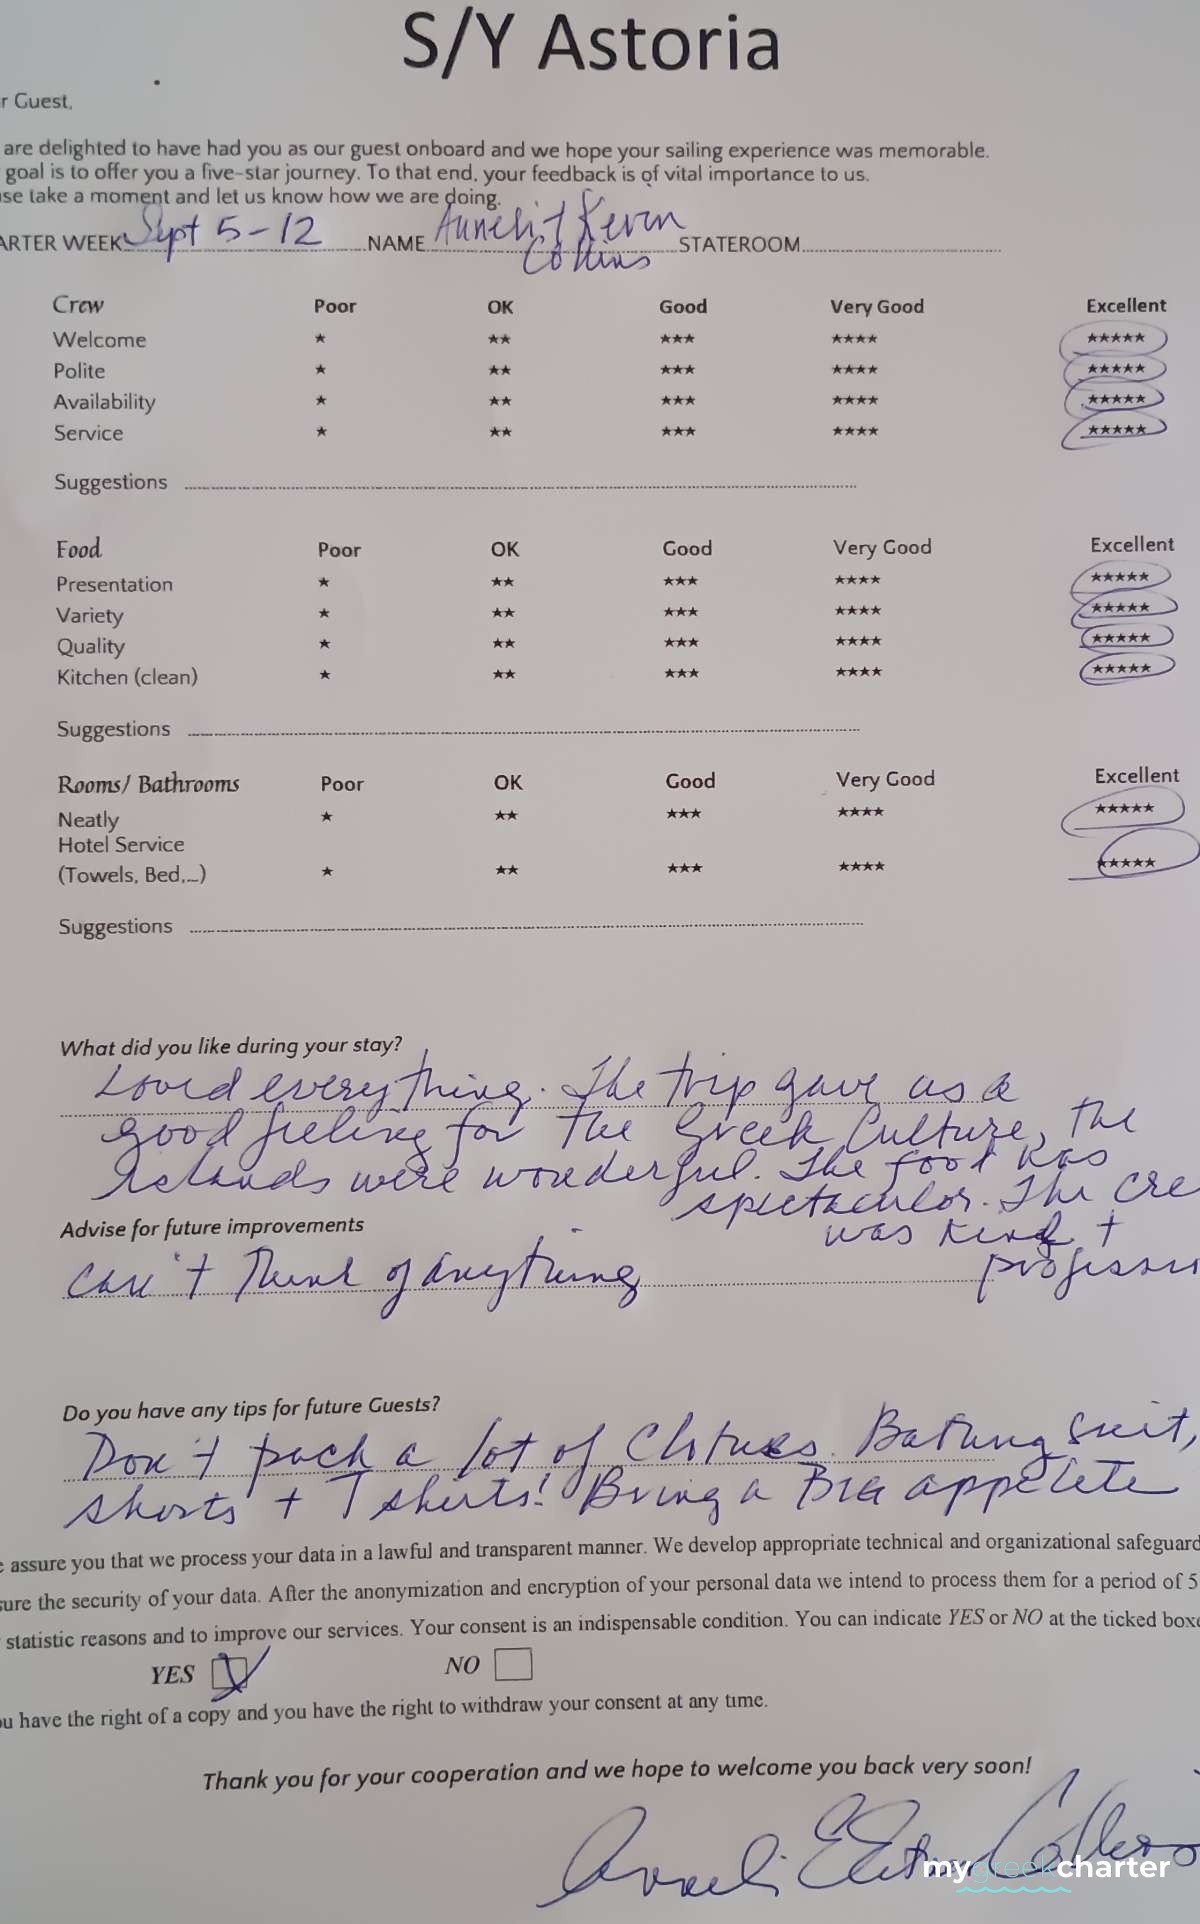 S/Y Astoria
r Guest,
are delighted to have had you as our guest onboard and we hope your sailing experience was memorable.
goal is to offer you a five-star journey. To that end, your feedback is of vital importance to us.
se take a moment and let us know how we are doing.
ARTER WEEK Sept 5-12 NAME Anneli + Kevin STATEROOM
Collins
Crew Poor OK Good Very Good Excellent
Welcome ★ ★★ ★★★ ★★★★ ★★★★★
Polite ★ ★★ ★★★ ★★★★ ★★★★★
Availability ★ ★★ ★★★ ★★★★ ★★★★★
Service ★ ★★ ★★★ ★★★★ ★★★★★
Suggestions
Food Poor OK Good Very Good Excellent
Presentation ★ ★★ ★★★ ★★★★ ★★★★★
Variety ★ ★★ ★★★ ★★★★ ★★★★★
Quality ★ ★★ ★★★ ★★★★ ★★★★★
Kitchen (clean) ★ ★★ ★★★ ★★★★ ★★★★★
Suggestions
Rooms/ Bathrooms Poor OK Good Very Good Excellent
Neatly ★ ★★ ★★★ ★★★★ ★★★★★
Hotel Service
(Towels, Bed,...) ★ ★★ ★★★ ★★★★ ★★★★★
Suggestions
What did you like during your stay?
Loved everything. The trip gave us a
good feeling for the Greek Culture, the
Islands were wonderful. The food was
spectacular. The cre
was kind +
professi
Advise for future improvements
can't think of anything
Do you have any tips for future Guests?
Don't pack a lot of Clothes. Bathing suit,
shorts + T shirts! Bring a BIG appetete
e assure you that we process your data in a lawful and transparent manner. We develop appropriate technical and organizational safeguard
sure the security of your data. After the anonymization and encryption of your personal data we intend to process them for a period of 5
statistic reasons and to improve our services. Your consent is an indispensable condition. You can indicate YES or NO at the ticked boxe
YES NO
ou have the right of a copy and you have the right to withdraw your consent at any time.
Thank you for your cooperation and we hope to welcome you back very soon!
mygreekcharter